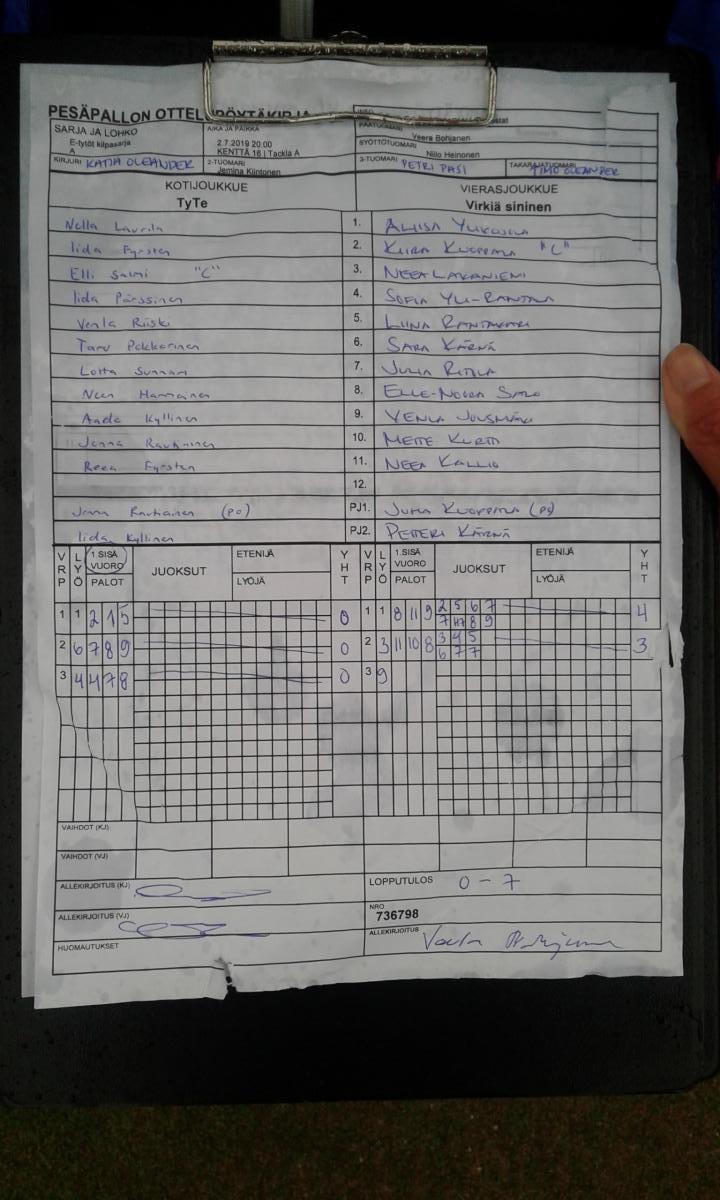 PESÄPALLON OTTELUPÖYTÄKIRJA
SARJA JA LOHKO
E-tytöt kilpasarja
A
AIKA JA PAIKKA
2.7.2019 20:00
KENTTÄ 16 | Tackla A
PÄÄTUOMARI
Veera Bohjanen
SYÖTTÖTUOMARI
Niilo Heinonen
KIRJURI KATJA OLEANDER
2-TUOMARI
Jemina Kiintonen
3-TUOMARI PETRI PASI
TAKARAJATUOMARI TIMO OLEANDER
KOTIJOUKKUE
TyTe
VIERASJOUKKUE
Virkiä sininen
Nella Laurila 1.
Iida Fyrsten 2. KIIRA KUOPPALA "C"
Elli Salmi "C" 3. NEEA LAKANIEMI
Iida Pärssinen 4. SOFIA YLI-RANTALA
Venla Riiski 5. LIINA RANTAKARI
Taru Pekkarinen 6. SARA KÄRNÄ
Lotta 7. JULIA
8. ELLE-NOORA SALO
Aada Kyllinen 9. VENLA JOUSMÄKI
Jenna Rautiainen 10. METTE KURTTI
Reea Fyrsten 11. NEEA KALLIO
12.
Jenna Rautiainen (po) PJ1. JUHA KUOPPALA (po)
Iida Kyllinen PJ2. PETTERI KÄRNÄ
VRP LYÖ 1.SISÄ VUORO PALOT JUOKSUT ETENIJÄ LYÖJÄ YHT VRP LYÖ 1.SISÄ VUORO PALOT JUOKSUT ETENIJÄ LYÖJÄ YHT
1 1 2 1 5 0 1 1 8 11 9 2 5 6 7 4
7 8 9
2 6 7 8 9 0 2 3 11 10 8 3 4 5 3
6 7 7
3 4 4 7 8 0 3 9
VAIHDOT (KJ)
VAIHDOT (VJ)
ALLEKIRJOITUS (KJ)
LOPPUTULOS 0 - 7
ALLEKIRJOITUS (VJ)
NRO
736798
HUOMAUTUKSET
ALLEKIRJOITUS